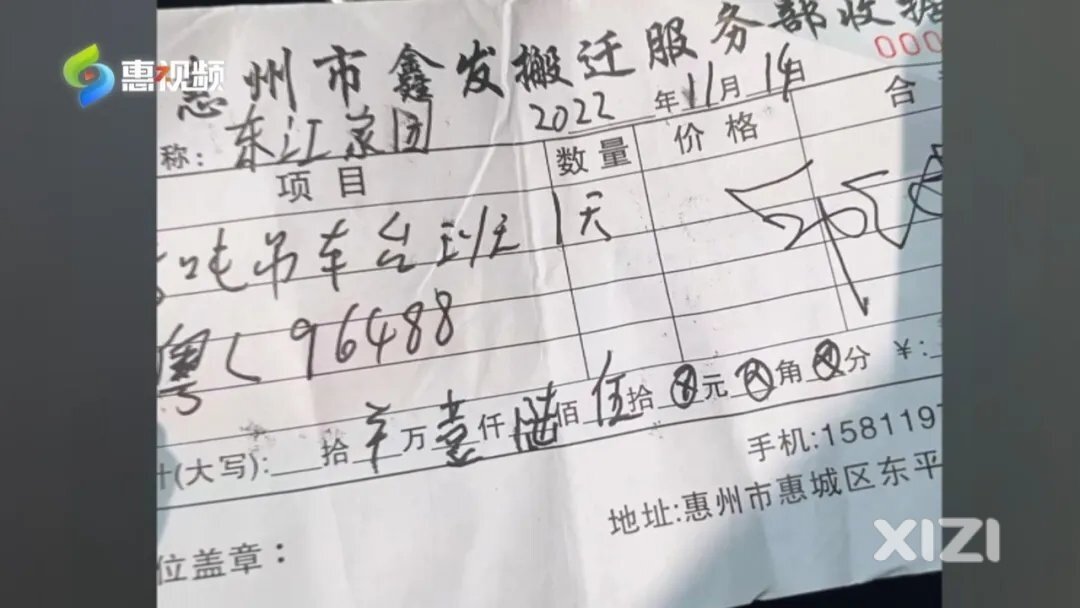 惠视频
惠州市鑫发搬迁服务部收据
000
2022年11月14日
称：东江家园
项目 数量 价格 合
吨吊车台班 1天
粤L96488
计(大写)： 拾 万壹仟陆佰伍拾 元 角 分 ￥：
手机:158119
地址:惠州市惠城区东平
位盖章：
XIZI